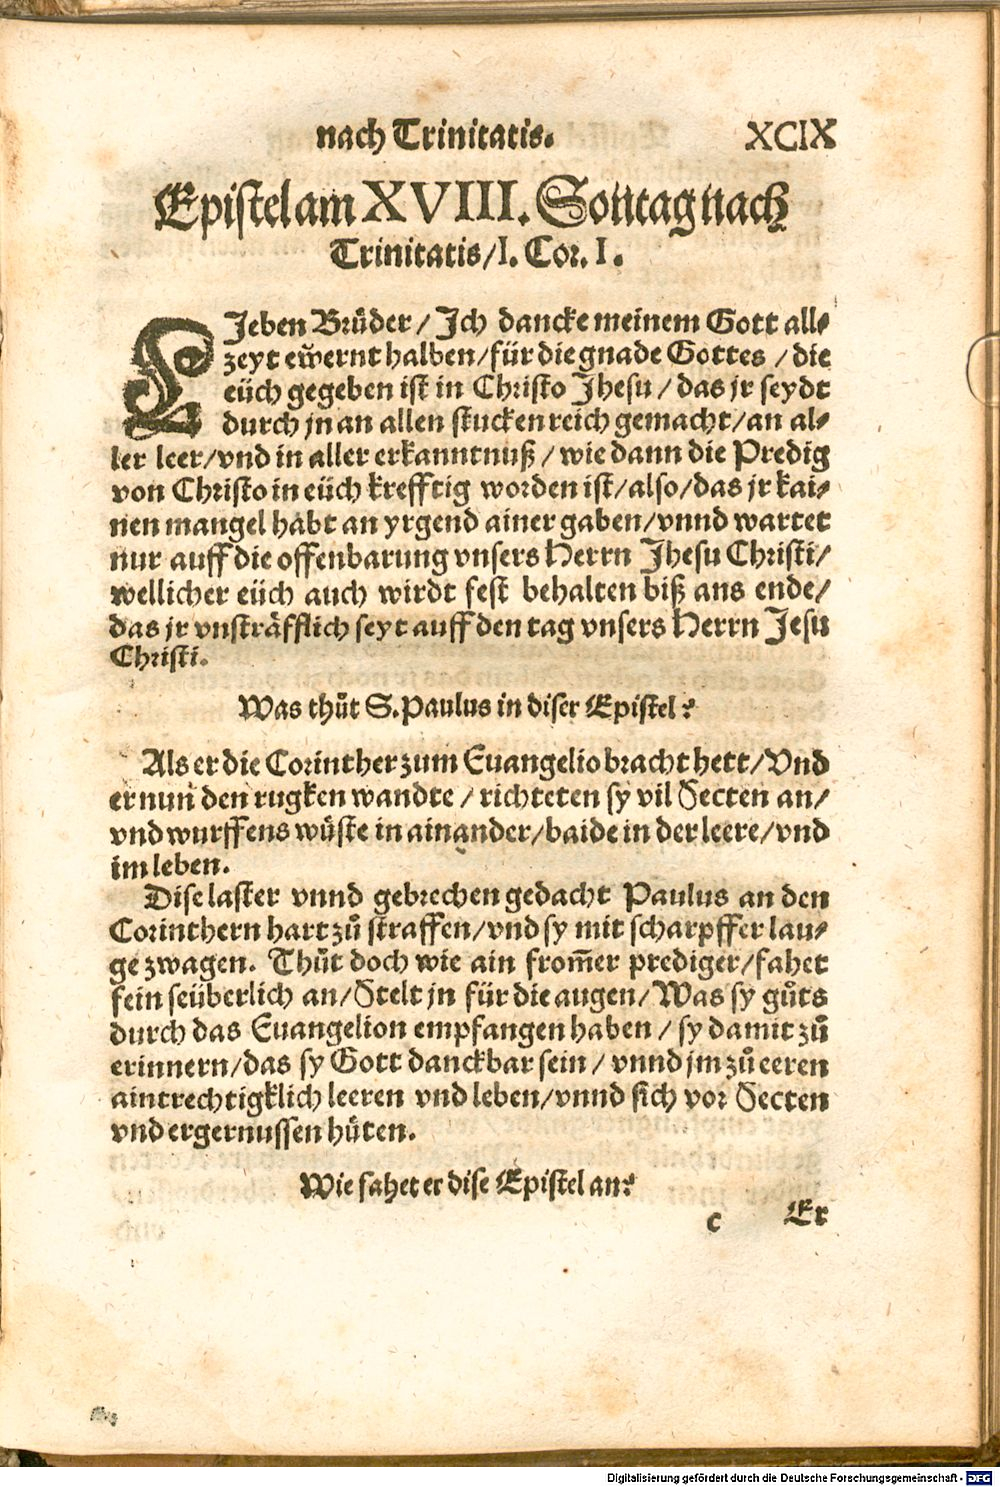 nach Trinitatis. XCIX
Epistel am XVIII. Sontag nach
Trinitatis/I. Cor. I.
LJeben Brüder / Jch dancke meinem Gott all⸗
zeyt ewernt halben/für die gnade Gottes / die
eüch gegeben ist in Christo Jhesu / das jr seydt
durch jn an allen stucken reich gemacht/an al⸗
ler leer/vnd in aller erkanntnuß / wie dann die Predig
von Christo in eüch krefftig worden ist/also/das jr kai⸗
nen mangel habt an yrgend ainer gaben/vnnd wartet
nur auff die offenbarung vnsers Herrn Jhesu Christi/
wellicher eüch auch wirdt fest behalten biß ans ende/
das jr vnsträfflich seyt auff den tag vnsers Herrn Jesu
Christi.
Was thůt S. Paulus in diser Epistel?
Als er die Corinther zum Euangelio bracht hett/Vnd
er nun den rugken wandte / richteten sy vil Secten an/
vnd wurffens wüste in ainander/baide in der leere/vnd
im leben.
Dise laster vnnd gebrechen gedacht Paulus an den
Corinthern hart zů straffen/vnd sy mit scharpffer lau⸗
ge zwagen. Thůt doch wie ain from̄er prediger/fahet
fein seüberlich an/Stelt jn für die augen/Was sy gůts
durch das Euangelion empfangen haben / sy damit zů
erinnern/das sy Gott danckbar sein / vnnd jm zů eeren
aintrechtigklich leeren vnd leben/vnnd sich vor Secten
vnd ergernussen hüten.
Wie fahet er dise Epistel an?
c Er
Digitalisierung gefördert durch die Deutsche Forschungsgemeinschaft - DFG